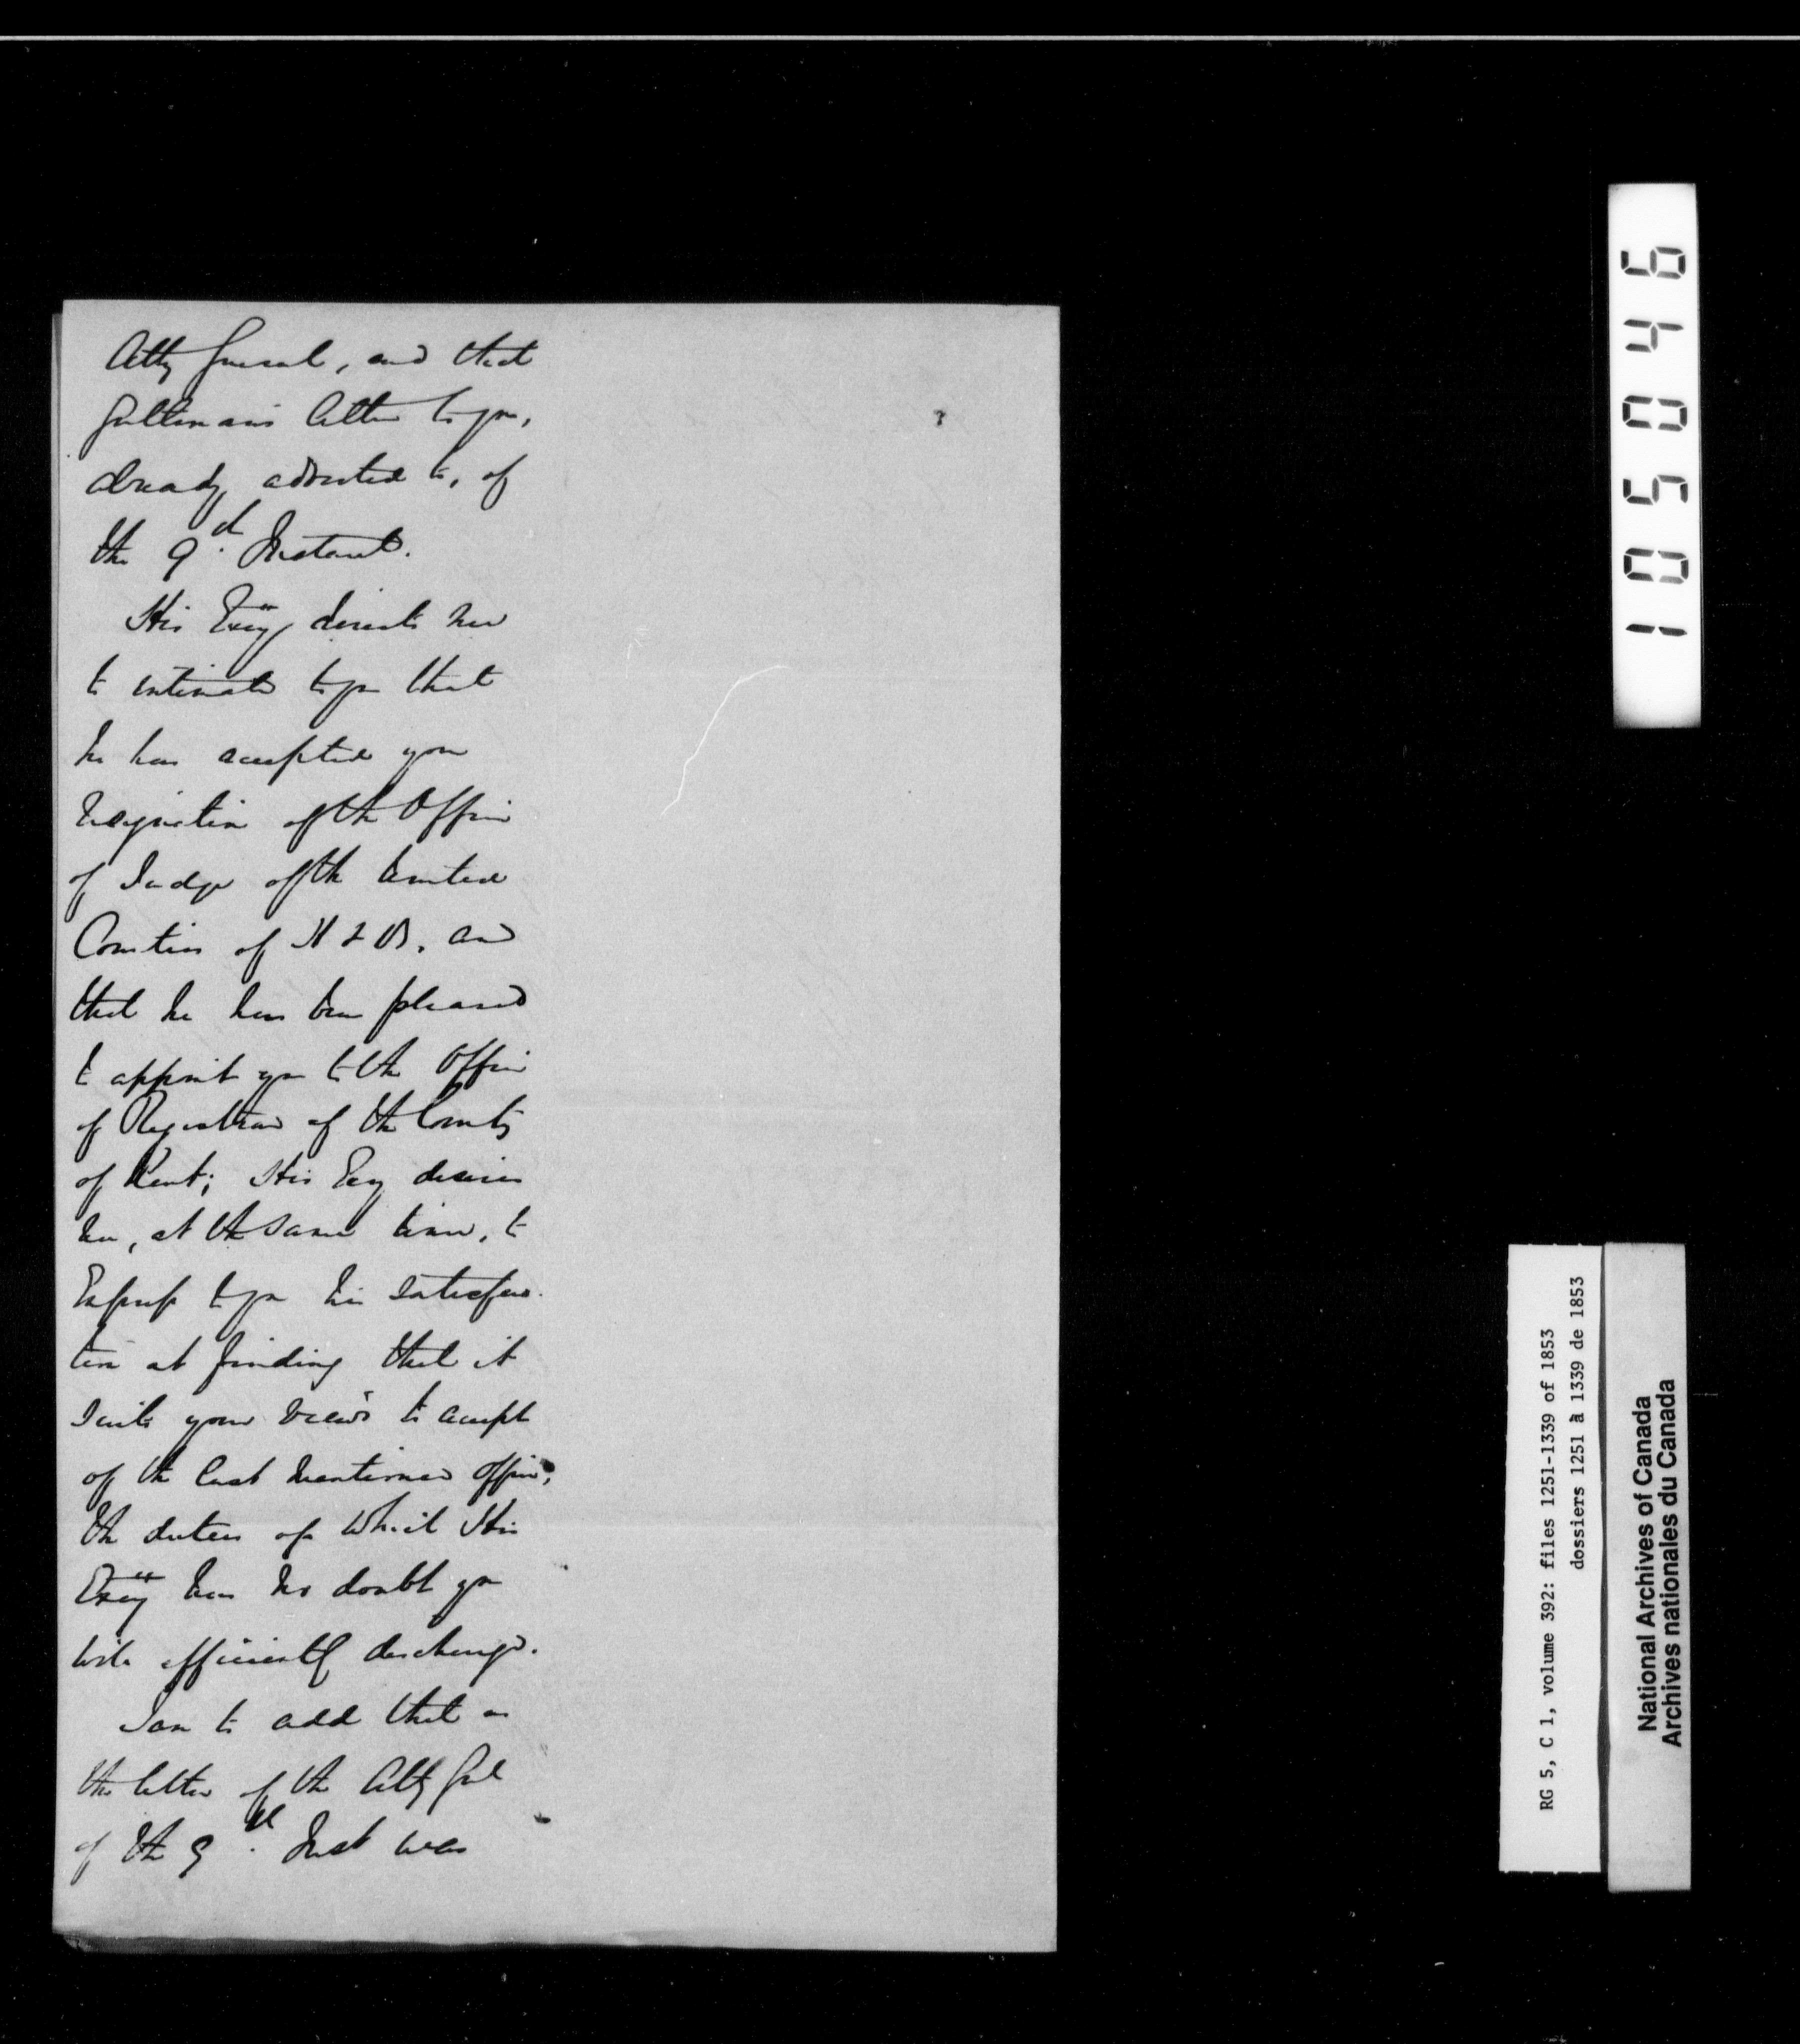 Atty General, and that
Gentleman's letter to you,
already adverted to, of
the 9th Instant.
His Excy directs me
to intimate to you that
he has accepted your
resignation of the Office
of Judge of the United
Counties of H & B. and
that he has been pleased
to appoint you to the Office
of Registrar of the County
of Kent; His Excy desires
me, at the same time, to
Express to you his satisfac-
tion at finding that it
suits your views to accept
of the last mentioned office,
the duties of which His
Excy has no doubt you
will efficiently discharge.
I am to add that as
the letter of the Atty Genl
of the 9th Inst was
105046
RG 5, C 1, volume 392: files 1251-1339 of 1853
dossiers 1251 à 1339 de 1853
National Archives of Canada
Archives nationales du Canada